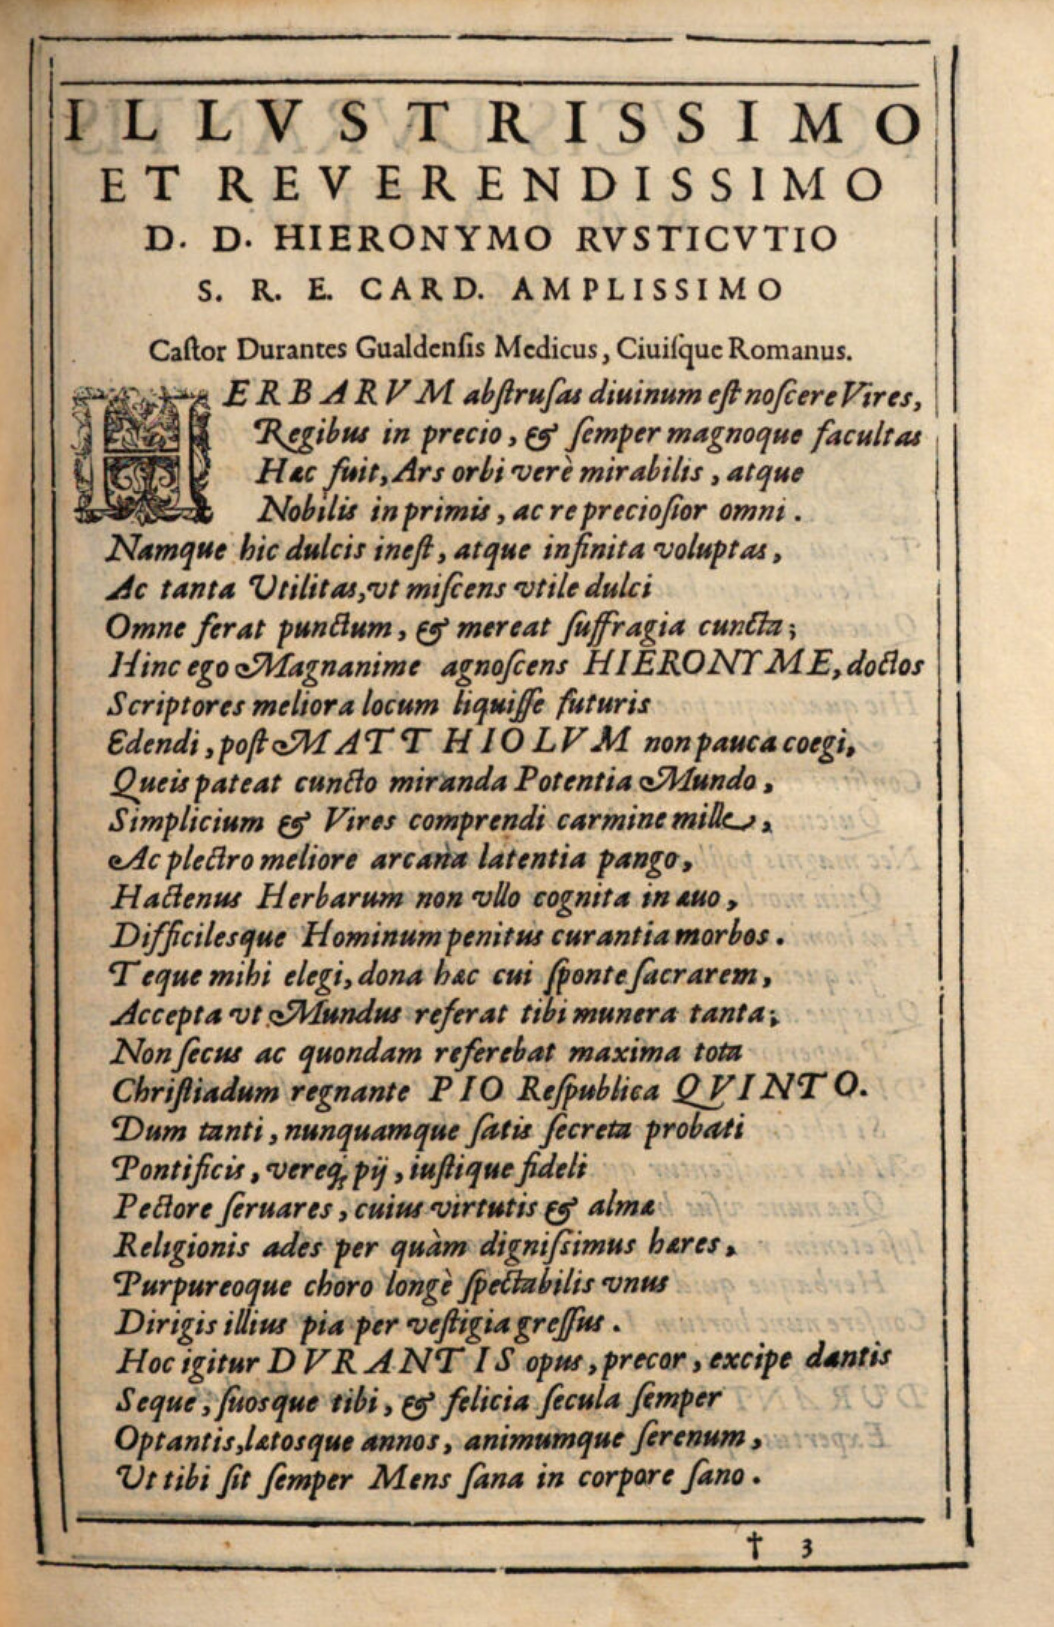 ILLVSTRISSIMO
ET REVERENDISSIMO
D. D. HIERONYMO RVSTICVTIO
S. R. E. CARD. AMPLISSIMO
Caſtor Durantes Gualdenſis Medicus, Ciuiſque Romanus.
HERBARVM abſtruſas diuinum eſt noſcere Vires,
Regibus in precio, & ſemper magnoque facultas
Hæc fuit, Ars orbi verè mirabilis, atque
Nobilis inprimis, ac re precioſior omni.
Namque hic dulcis ineſt, atque infinita voluptas,
Ac tanta Vtilitas, vt miſcens vtile dulci
Omne ferat punctum, & mereat ſuffragia cuncta;
Hinc ego Magnanime agnoſcens HIERONYME, doctos
Scriptores meliora locum liquiſſe futuris
Edendi, poſt MATTHIOLVM non pauca coegi,
Queis pateat cuncto miranda Potentia Mundo,
Simplicium & Vires comprendi carmine mille,
Ac plectro meliore arcana latentia pango,
Hactenus Herbarum non vllo cognita in æuo,
Difficilesque Hominum penitus curantia morbos.
Teque mihi elegi, dona hæc cui ſponte ſacrarem,
Accepta vt Mundus referat tibi munera tanta;
Non ſecus ac quondam referebat maxima tota
Chriſtiadum regnante PIO Reſpublica QVINTO.
Dum tanti, nunquamque ſatis ſecreta probati
Pontificis, vereq; pij, iuſtique fideli
Pectore ſeruares, cuius virtutis & almæ
Religionis ades per quàm digniſsimus hæres,
Purpureoque choro longè ſpectabilis vnus
Dirigis illius pia per veſtigia greſſus.
Hoc igitur DVRANTIS opus, precor, excipe dantis
Seque, ſuosque tibi, & felicia ſecula ſemper
Optantis, lætosque annos, animumque ſerenum,
Vt tibi ſit ſemper Mens ſana in corpore ſano.
† 3